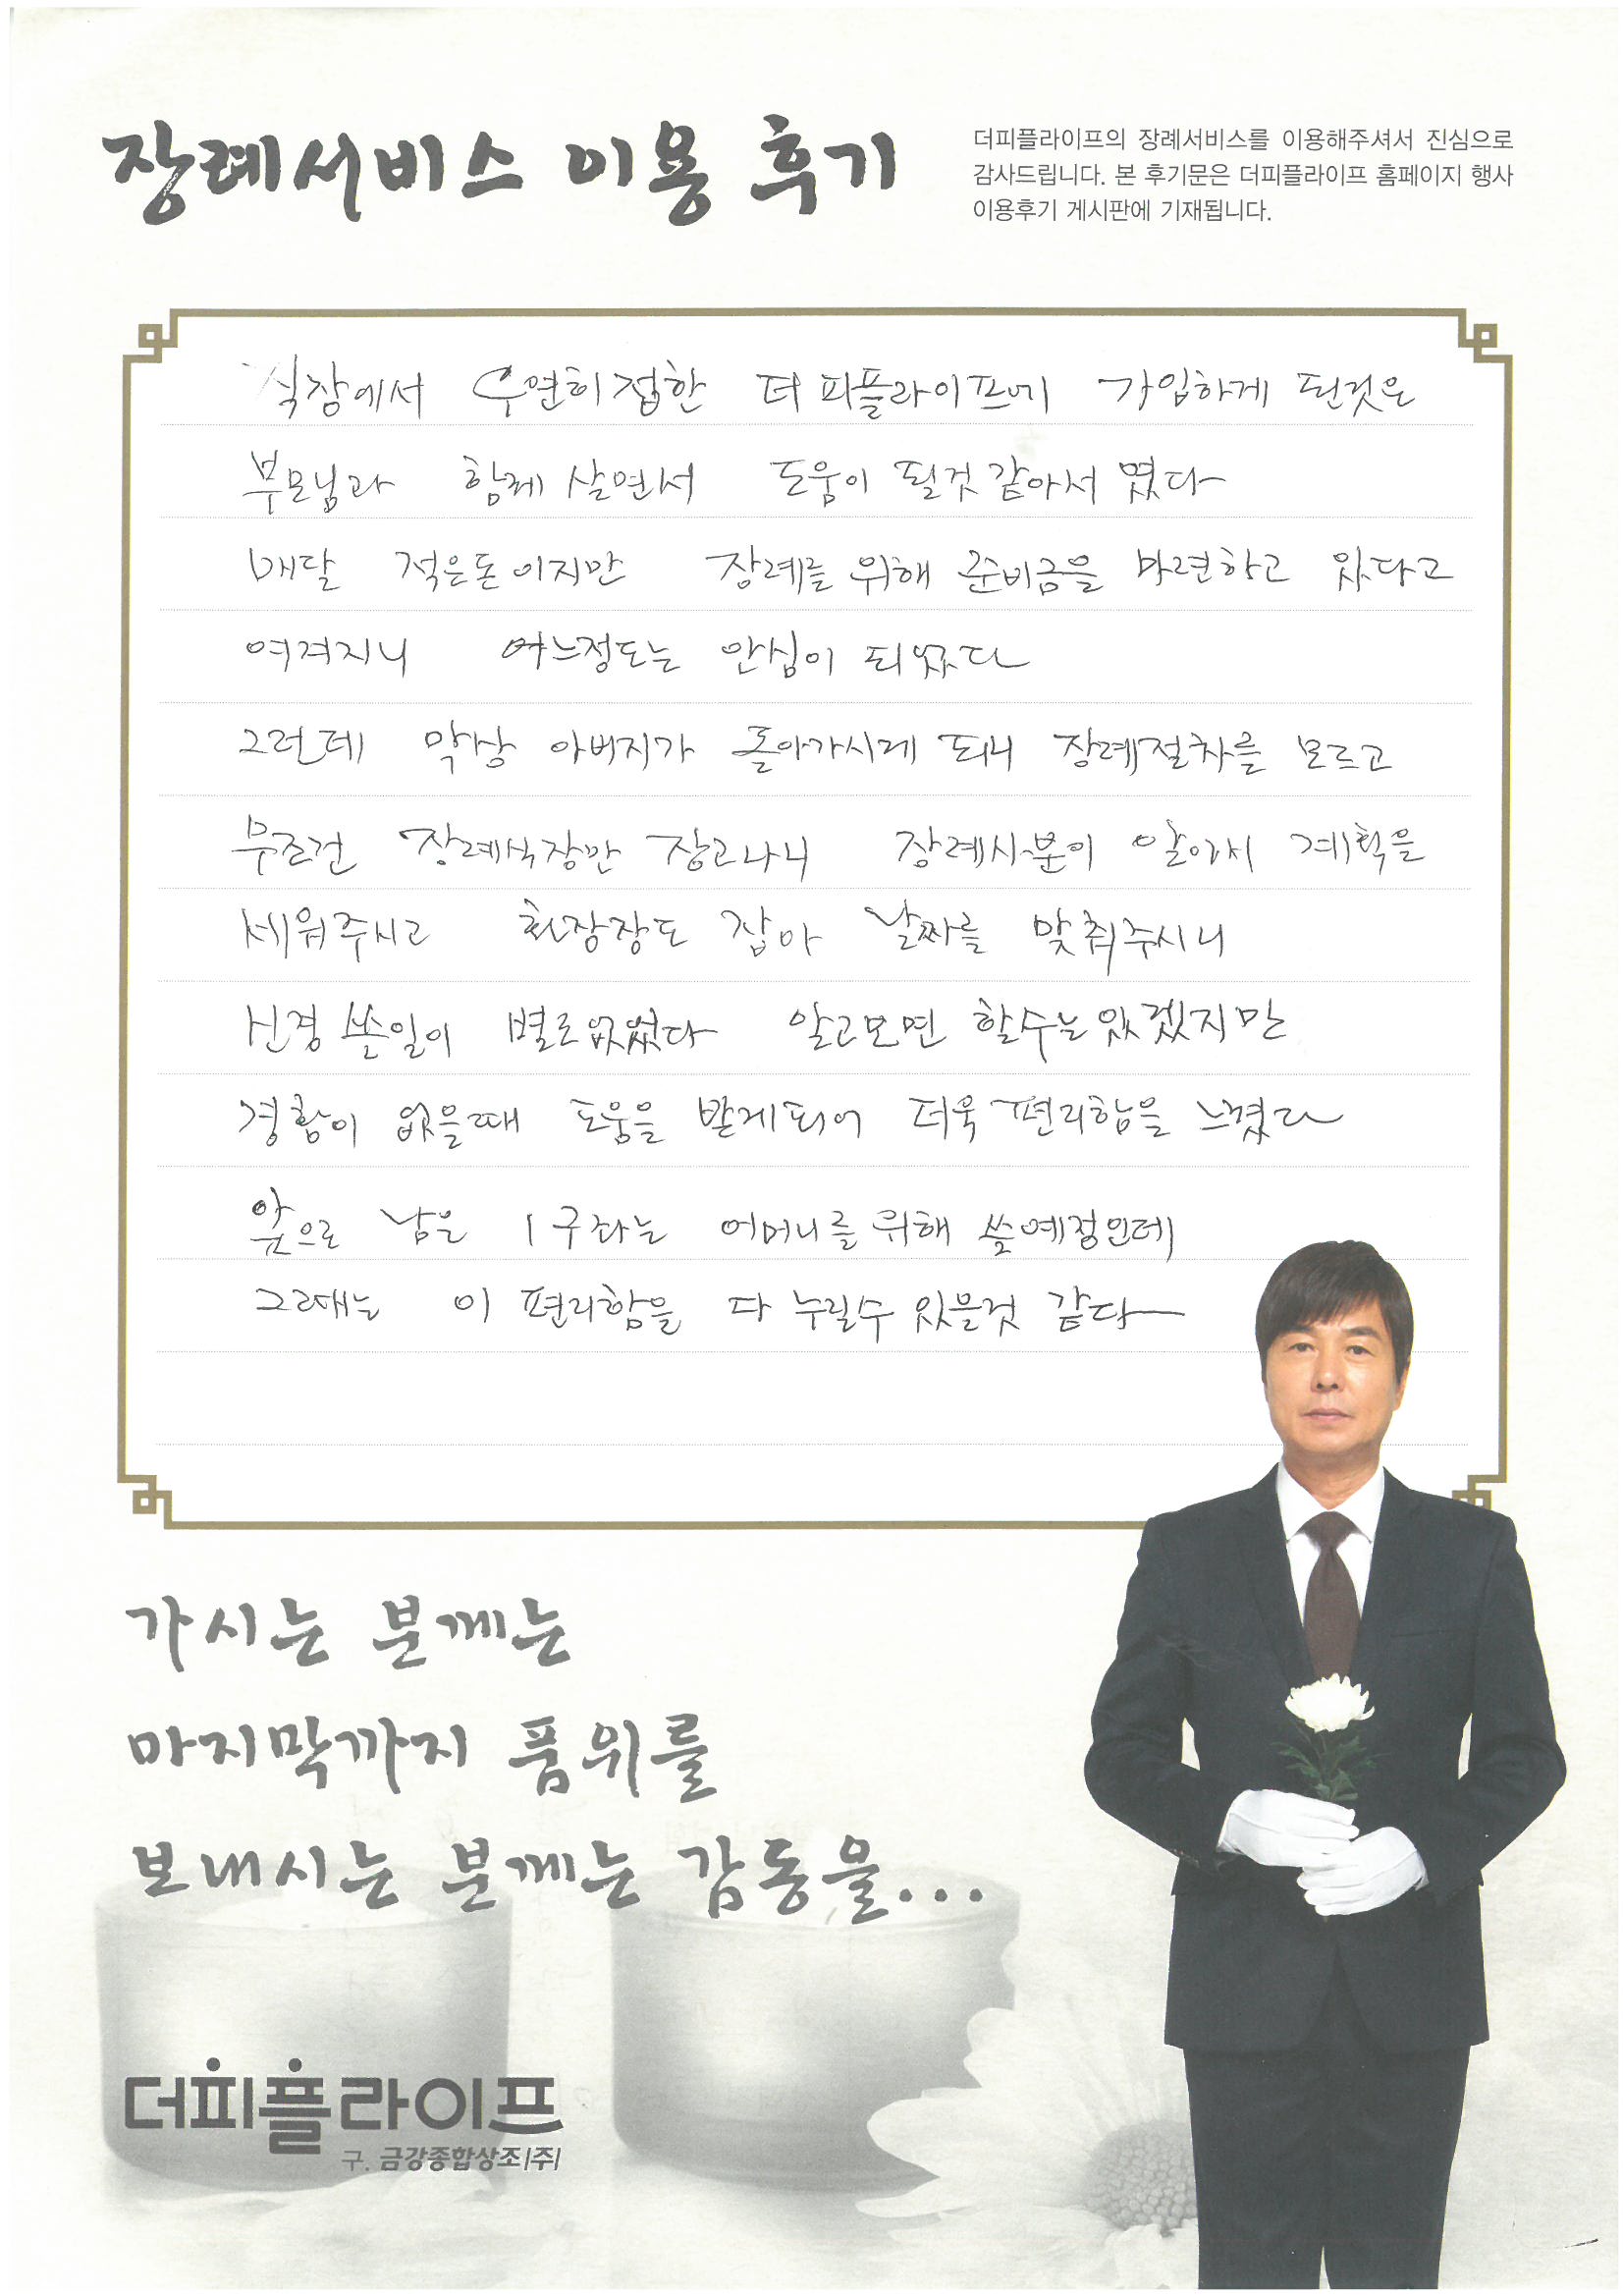 장례서비스 이용 후기
더피플라이프의 장례서비스를 이용해주셔서 진심으로
감사드립니다. 본 후기문은 더피플라이프 홈페이지 행사
이용후기 게시판에 기재됩니다.
식장에서 우연히 접한 더 피플라이프에 가입하게 된것은
부모님과 함께 살면서 도움이 될것 같아서 였다
매달 적은돈이지만 장례를 위해 준비금을 마련하고 있다고
여겨지니 어느정도는 안심이 되었다
그런데 막상 아버지가 돌아가시게 되니 장례절차를 모르고
무조건 장례식장만 잡고나니 장례사분이 알아서 계획을
세워주시고 화장장도 잡아 날짜를 맞춰주시니
신경 쓸일이 별로없었다 알고보면 할수는 있겠지만
경황이 없을때 도움을 받게되어 더욱 편리함을 느꼈다
앞으로 남은 1구좌는 어머니를 위해 쓸예정인데
그때는 이 편리함을 다 누릴수 있을것 같다
가시는 분께는
마지막까지 품위를
보내시는 분께는 감동을...
더피플라이프
구. 금강종합상조(주)